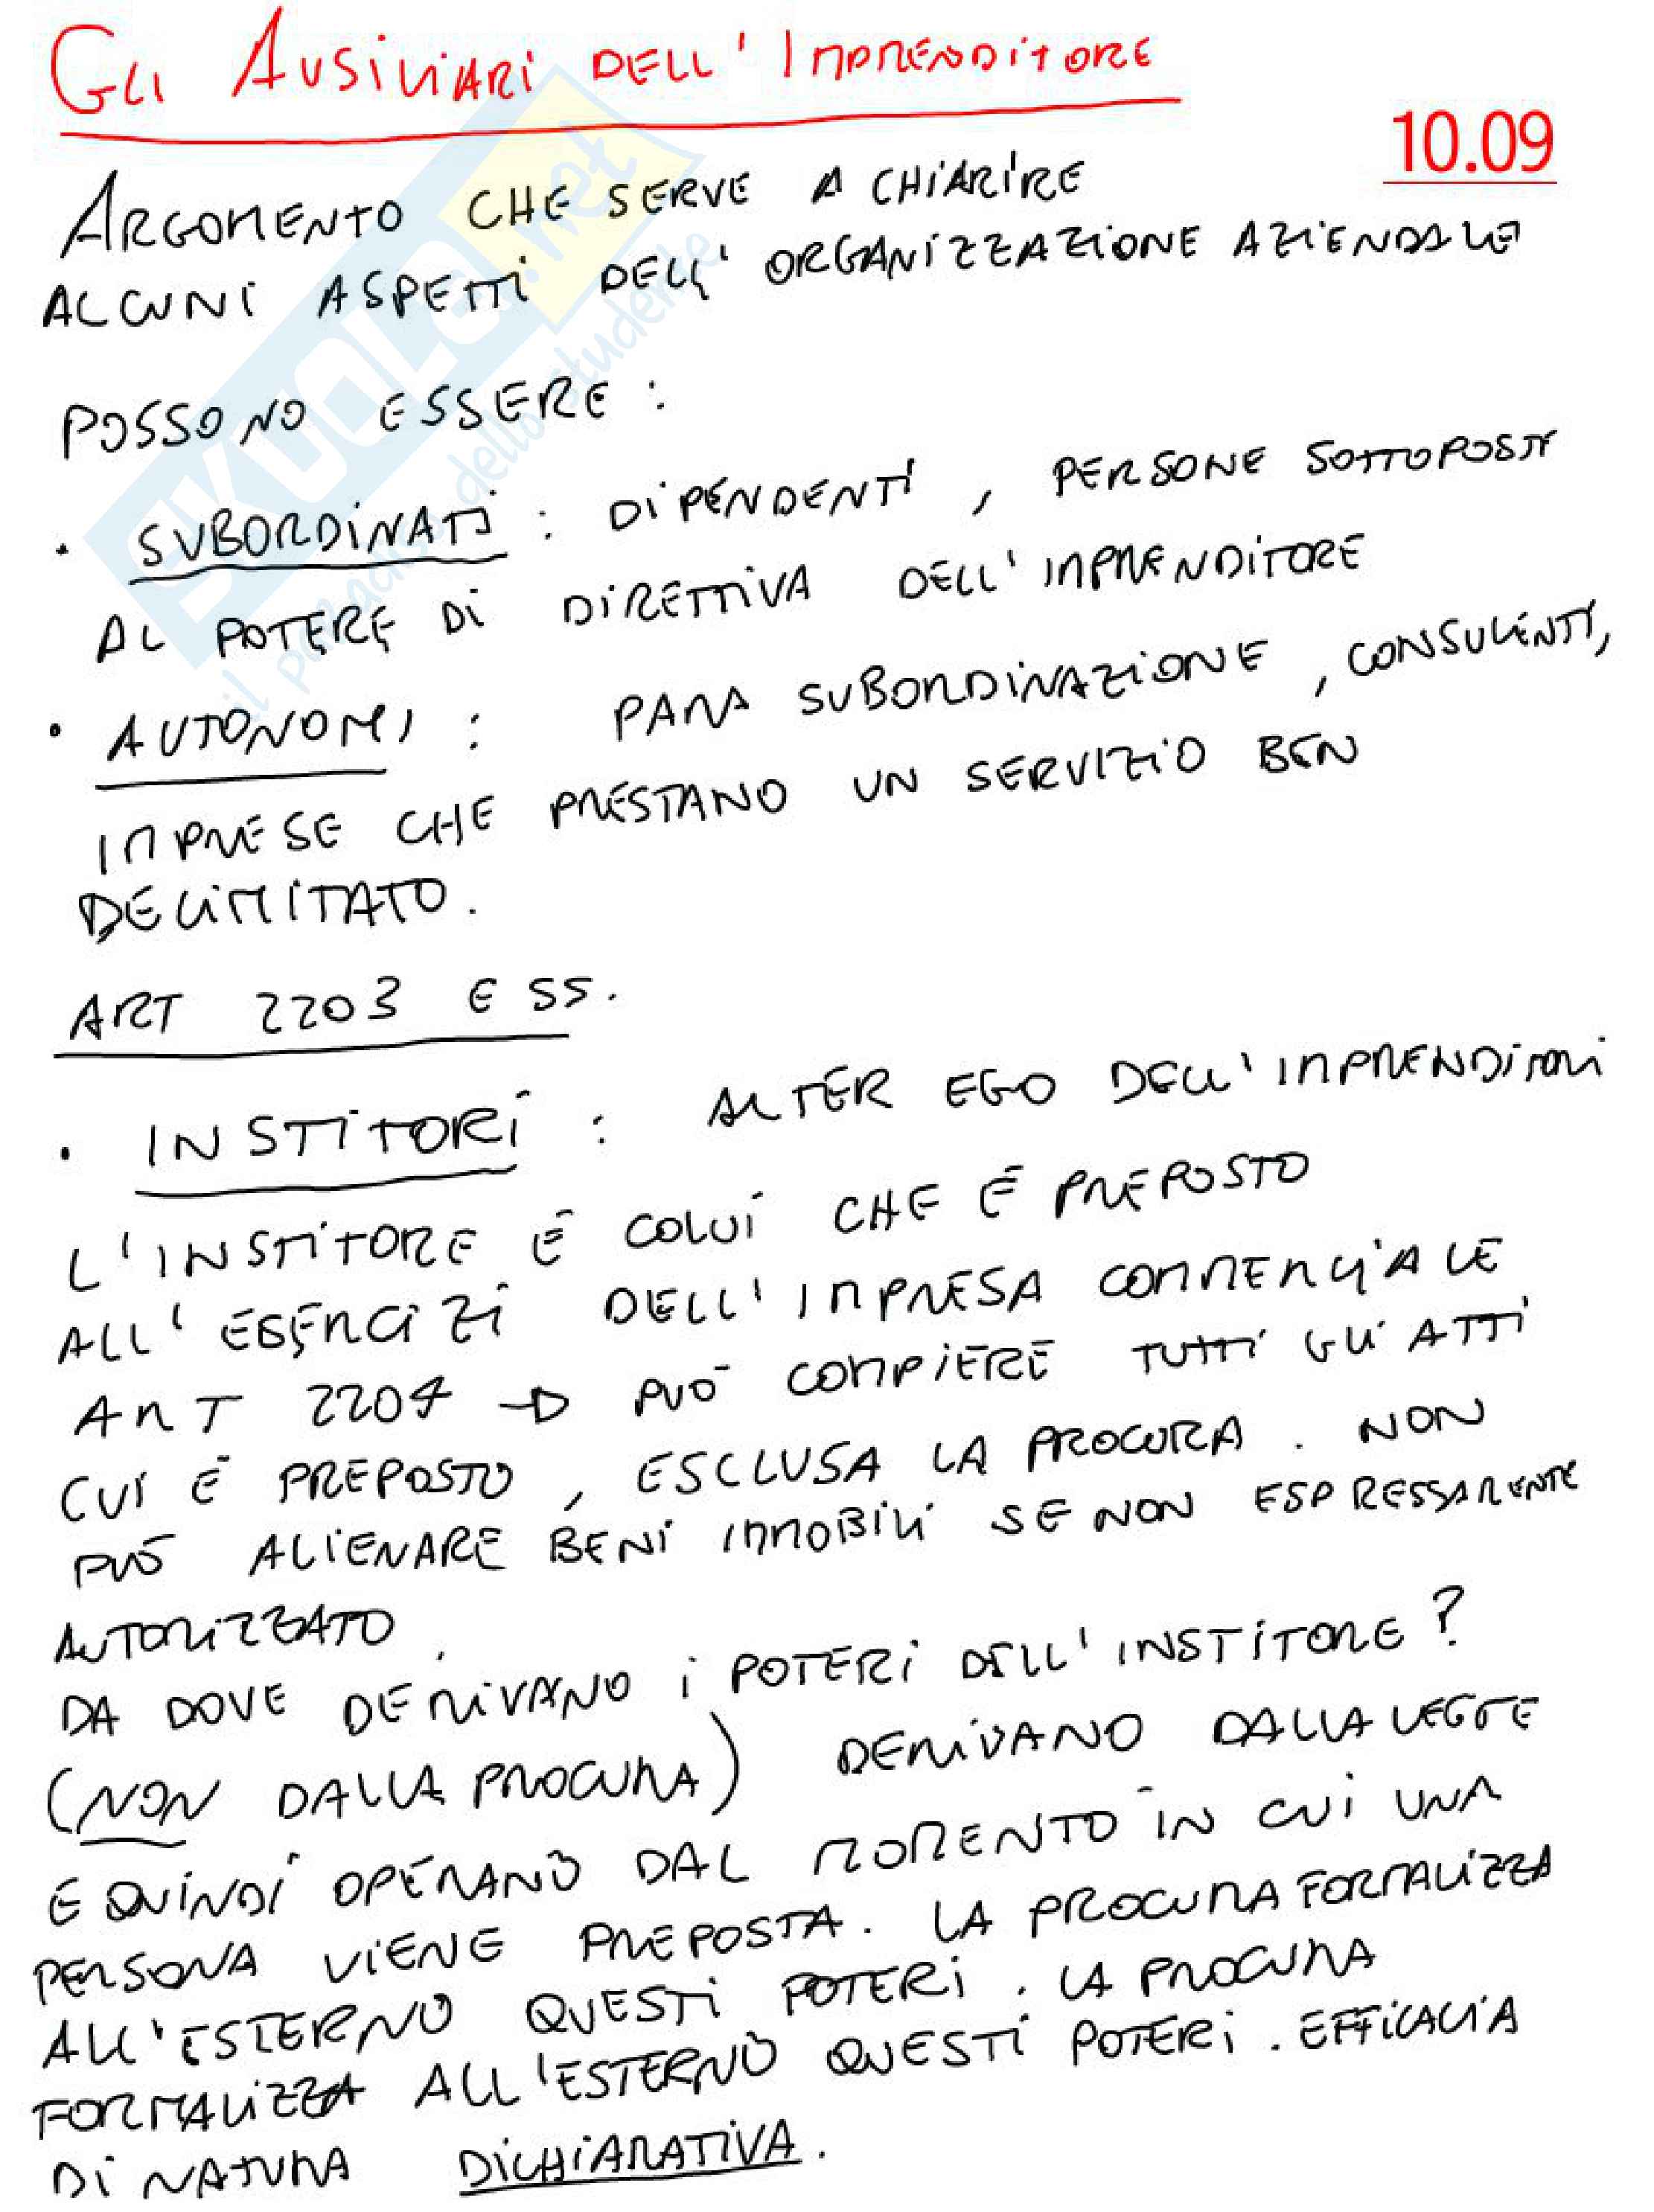 GLI AUSILIARI DELL'IMPRENDITORE
10.09
ARGOMENTO CHE SERVE A CHIARIRE
ALCUNI ASPETTI DELL'ORGANIZZAZIONE AZIENDALE
POSSONO ESSERE :
• SUBORDINATI : DIPENDENTI , PERSONE SOTTOPOSTI
AL POTERE DI DIRETTIVA DELL'IMPRENDITORE
• AUTONOMI : PARA SUBORDINAZIONE , CONSULENTI,
IMPRESE CHE PRESTANO UN SERVIZIO BEN
DELIMITATO.
ART 2203 E SS.
• INSTITORI : ALTER EGO DELL'IMPRENDITORI
L'INSTITORE È COLUI CHE È PREPOSTO
ALL'ESERCIZI DELL'IMPRESA COMMERCIALE
ART 2204 → PUÒ COMPIERE TUTTI GLI ATTI
CUI È PREPOSTO , ESCLUSA LA PROCURA . NON
PUÒ ALIENARE BENI IMMOBILI SE NON ESPRESSAMENTE
AUTORIZZATO .
DA DOVE DERIVANO I POTERI DELL'INSTITORE ?
(NON DALLA PROCURA) DERIVANO DALLA LEGGE
E QUINDI OPERANO DAL MOMENTO IN CUI UNA
PERSONA VIENE PREPOSTA . LA PROCURA FORMALIZZA
ALL'ESTERNO QUESTI POTERI . LA PROCURA
FORMALIZZA ALL'ESTERNO QUESTI POTERI . EFFICACIA
DI NATURA DICHIARATIVA .
SKUOLA.net
il paradiso dello studente